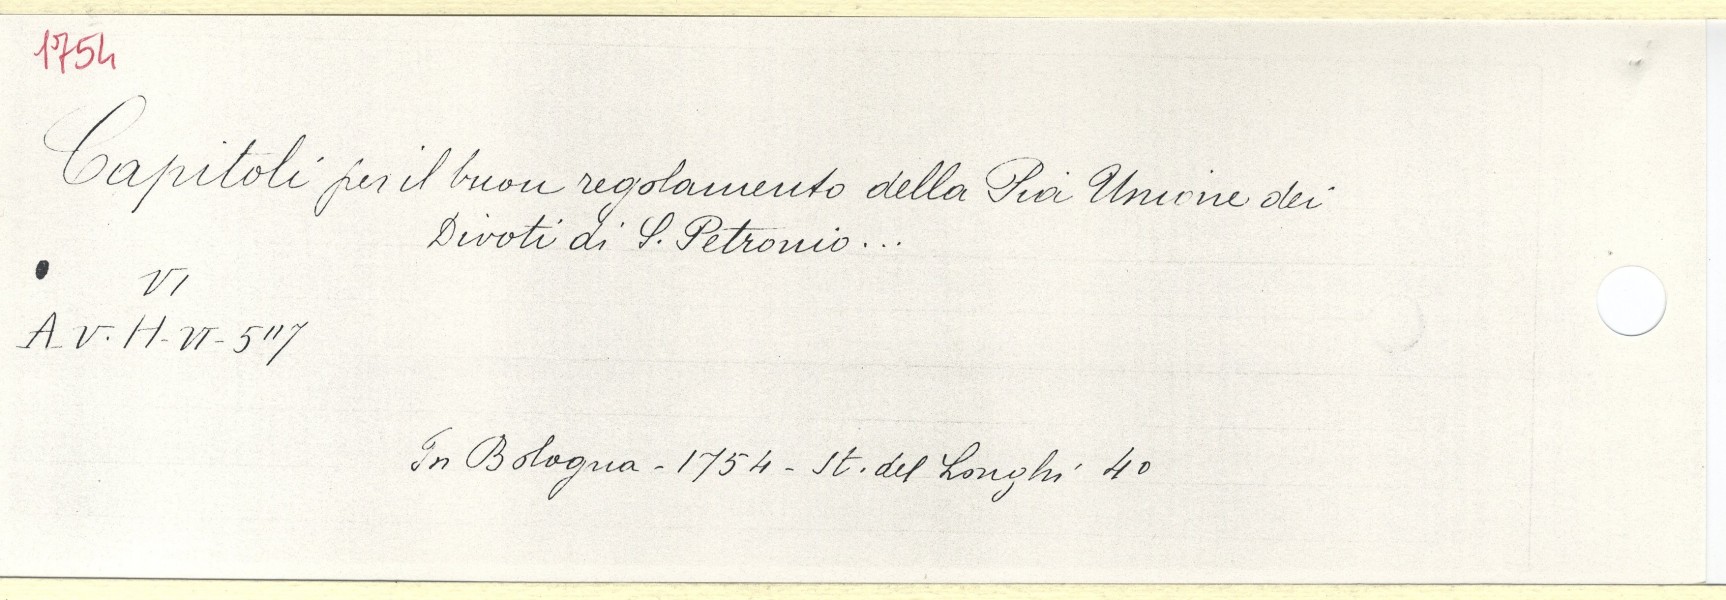 1754
Capitoli per il buon regolamento della Pia Unione dei
Divoti di S. Petronio...
VI
A.V. H-VI-5"7
In Bologna - 1754 - St. del Longhi 4o